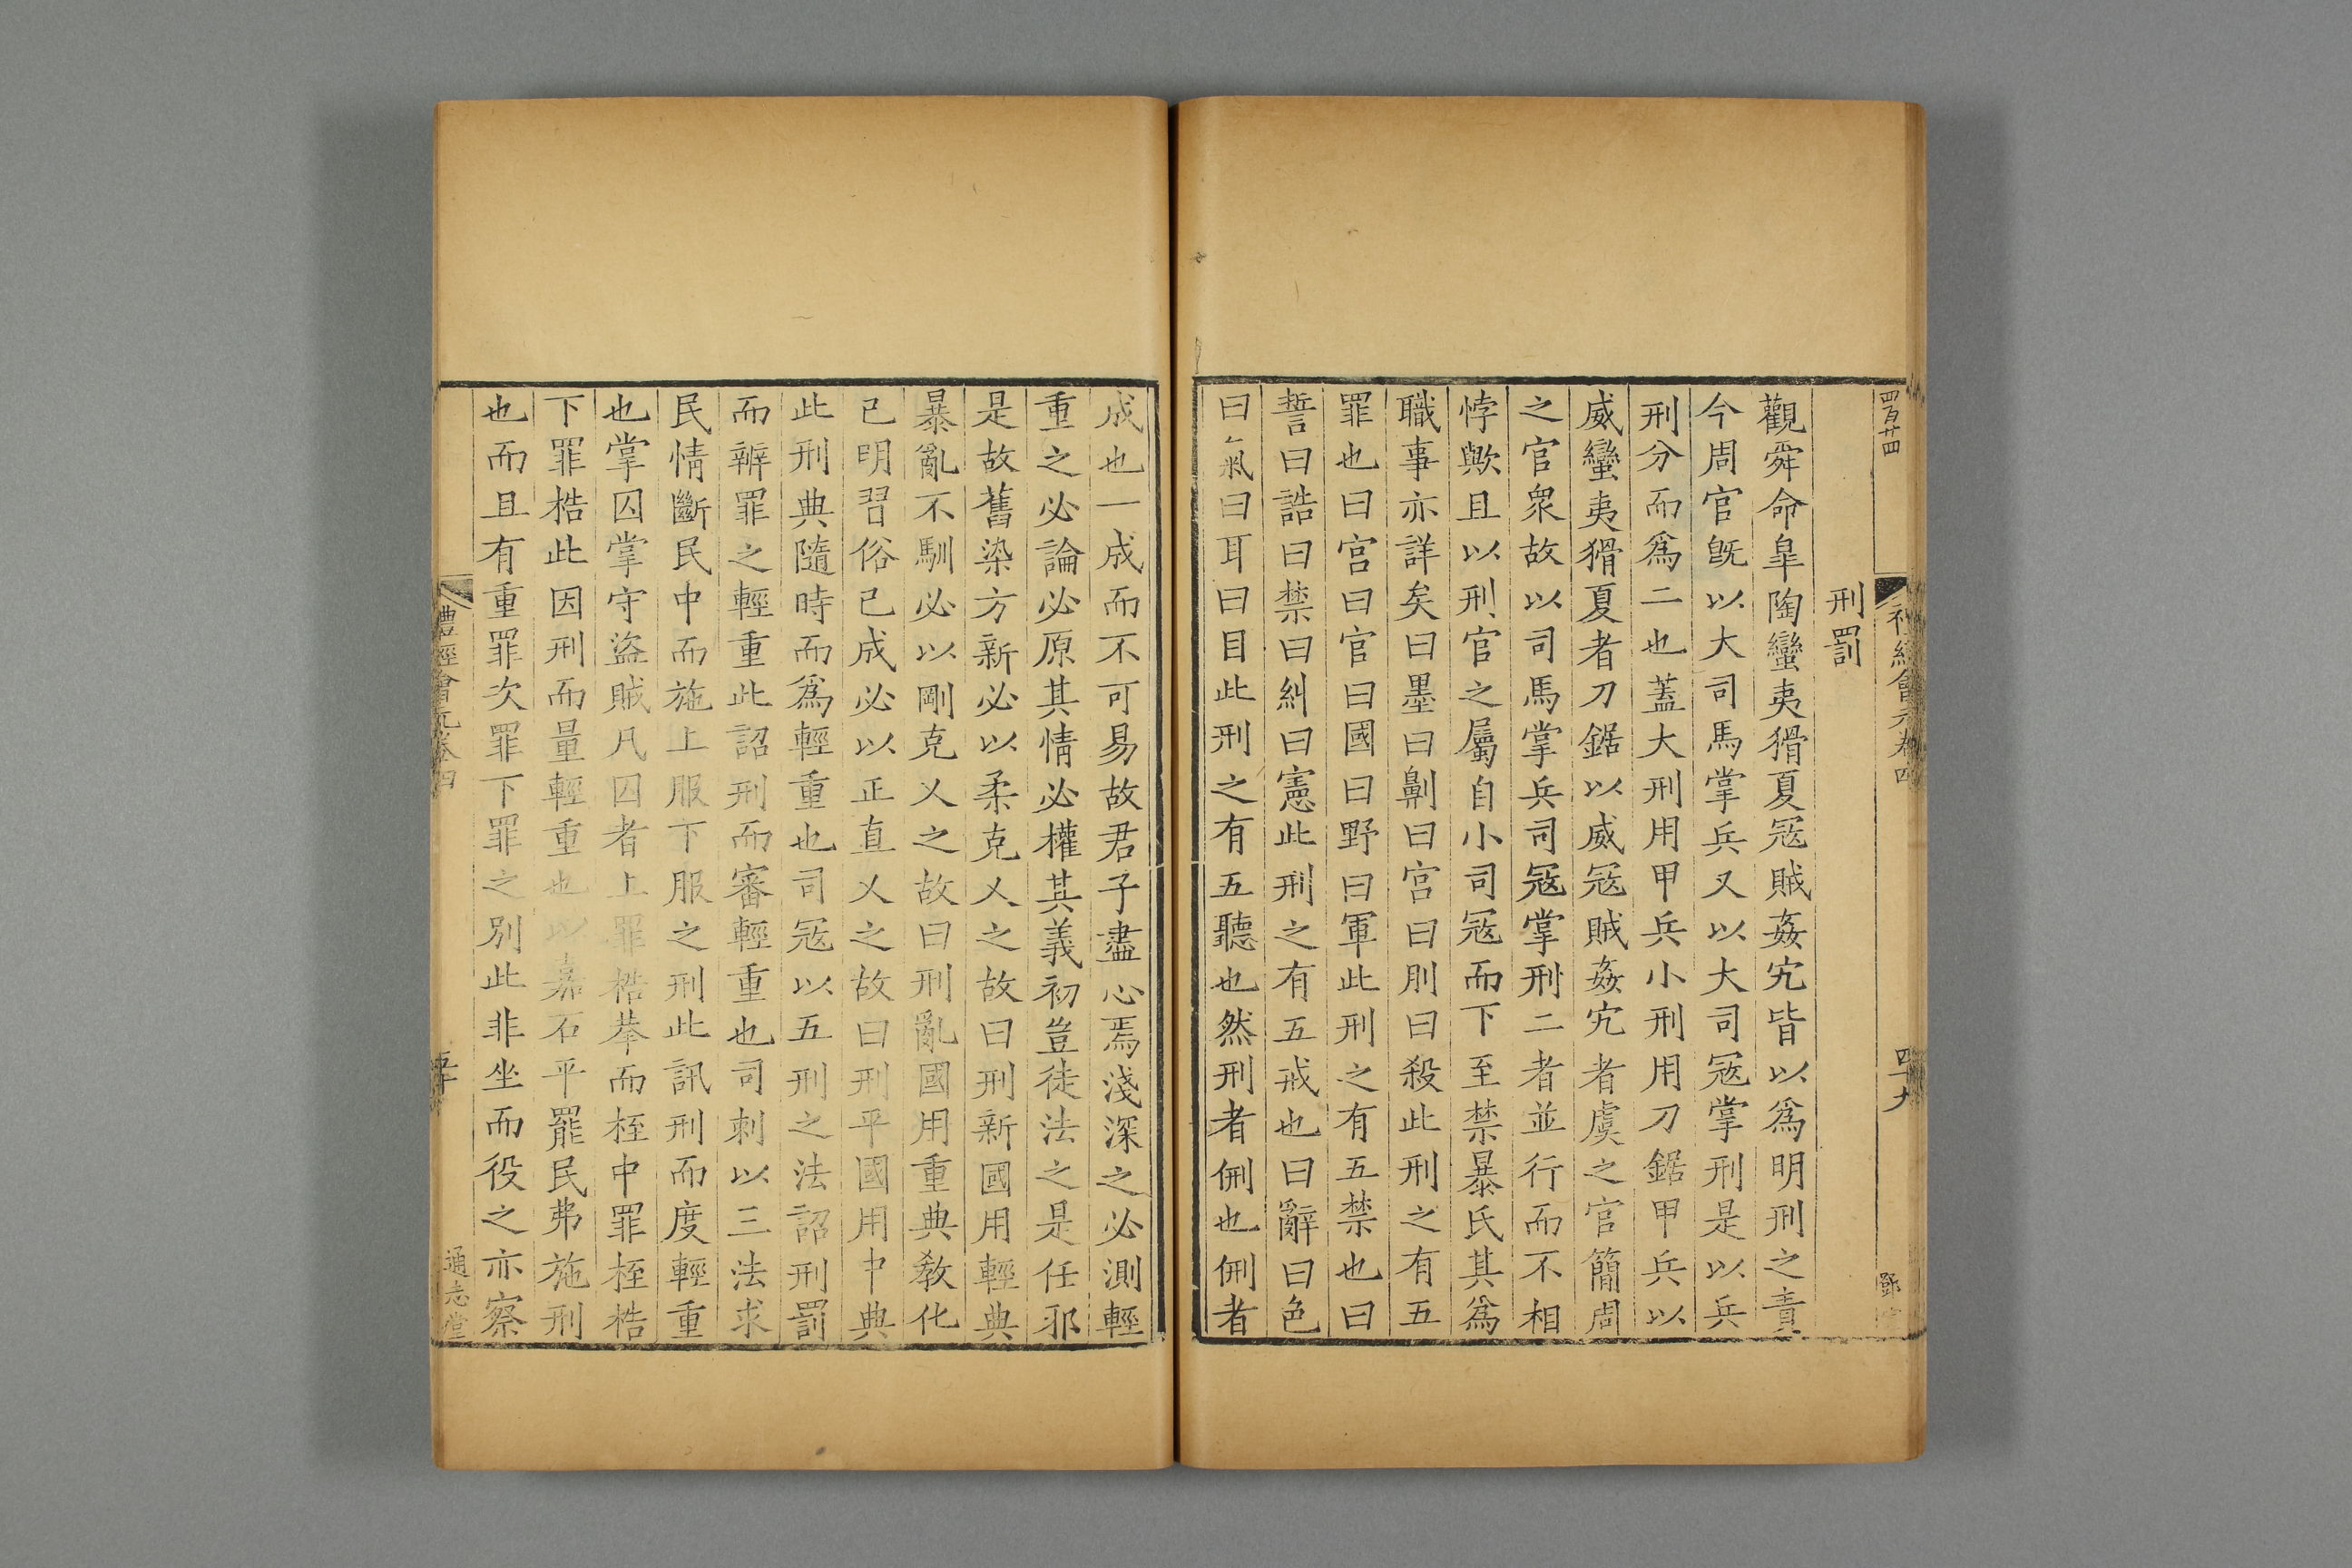 四百廿四
禮經會元卷四
四十九
刑罰
觀舜命皐陶蠻夷猾夏冦賊姦宄皆以爲明刑之責
今周官旣以大司馬掌兵又以大司冦掌刑是以兵
刑分而爲二也蓋大刑用甲兵小刑用刀鋸甲兵以
威蠻夷猾夏者刀鋸以威冦賊姦宄者虞之官簡周
之官衆故以司馬掌兵司冦掌刑二者並行而不相
悖歟且以刑官之屬自小司冦而下至禁暴氏其爲
職事亦詳矣曰墨曰劓曰宫曰刖曰殺此刑之有五
罪也曰宫曰官曰國曰野曰軍此刑之有五禁也曰
誓曰誥曰禁曰糾曰憲此刑之有五戒也曰辭曰色
曰氣曰耳曰目此刑之有五聽也然刑者侀也侀者
成也一成而不可易故君子盡心焉淺深之必測輕
重之必論必原其情必權其義初豈徒法之是任邪
是故舊染方新必以柔克乂之故曰刑新國用輕典
暴亂不馴必以剛克乂之故曰刑亂國用重典敎化
已明習俗已成必以正直乂之故曰刑平國用中典
此刑典隨時而爲輕重也司冦以五刑之法詔刑罰
而辨罪之輕重此詔刑而審輕重也司刺以三法求
民情斷民中而施上服下服之刑此訊刑而度輕重
也掌囚掌守盜賊凡囚者上罪梏拲而桎中罪桎梏
下罪梏此因刑而量輕重也以嘉石平罷民弗施刑
也而且有重罪次罪下罪之別此非坐而役之亦察
禮經會元卷四
五十
通志堂